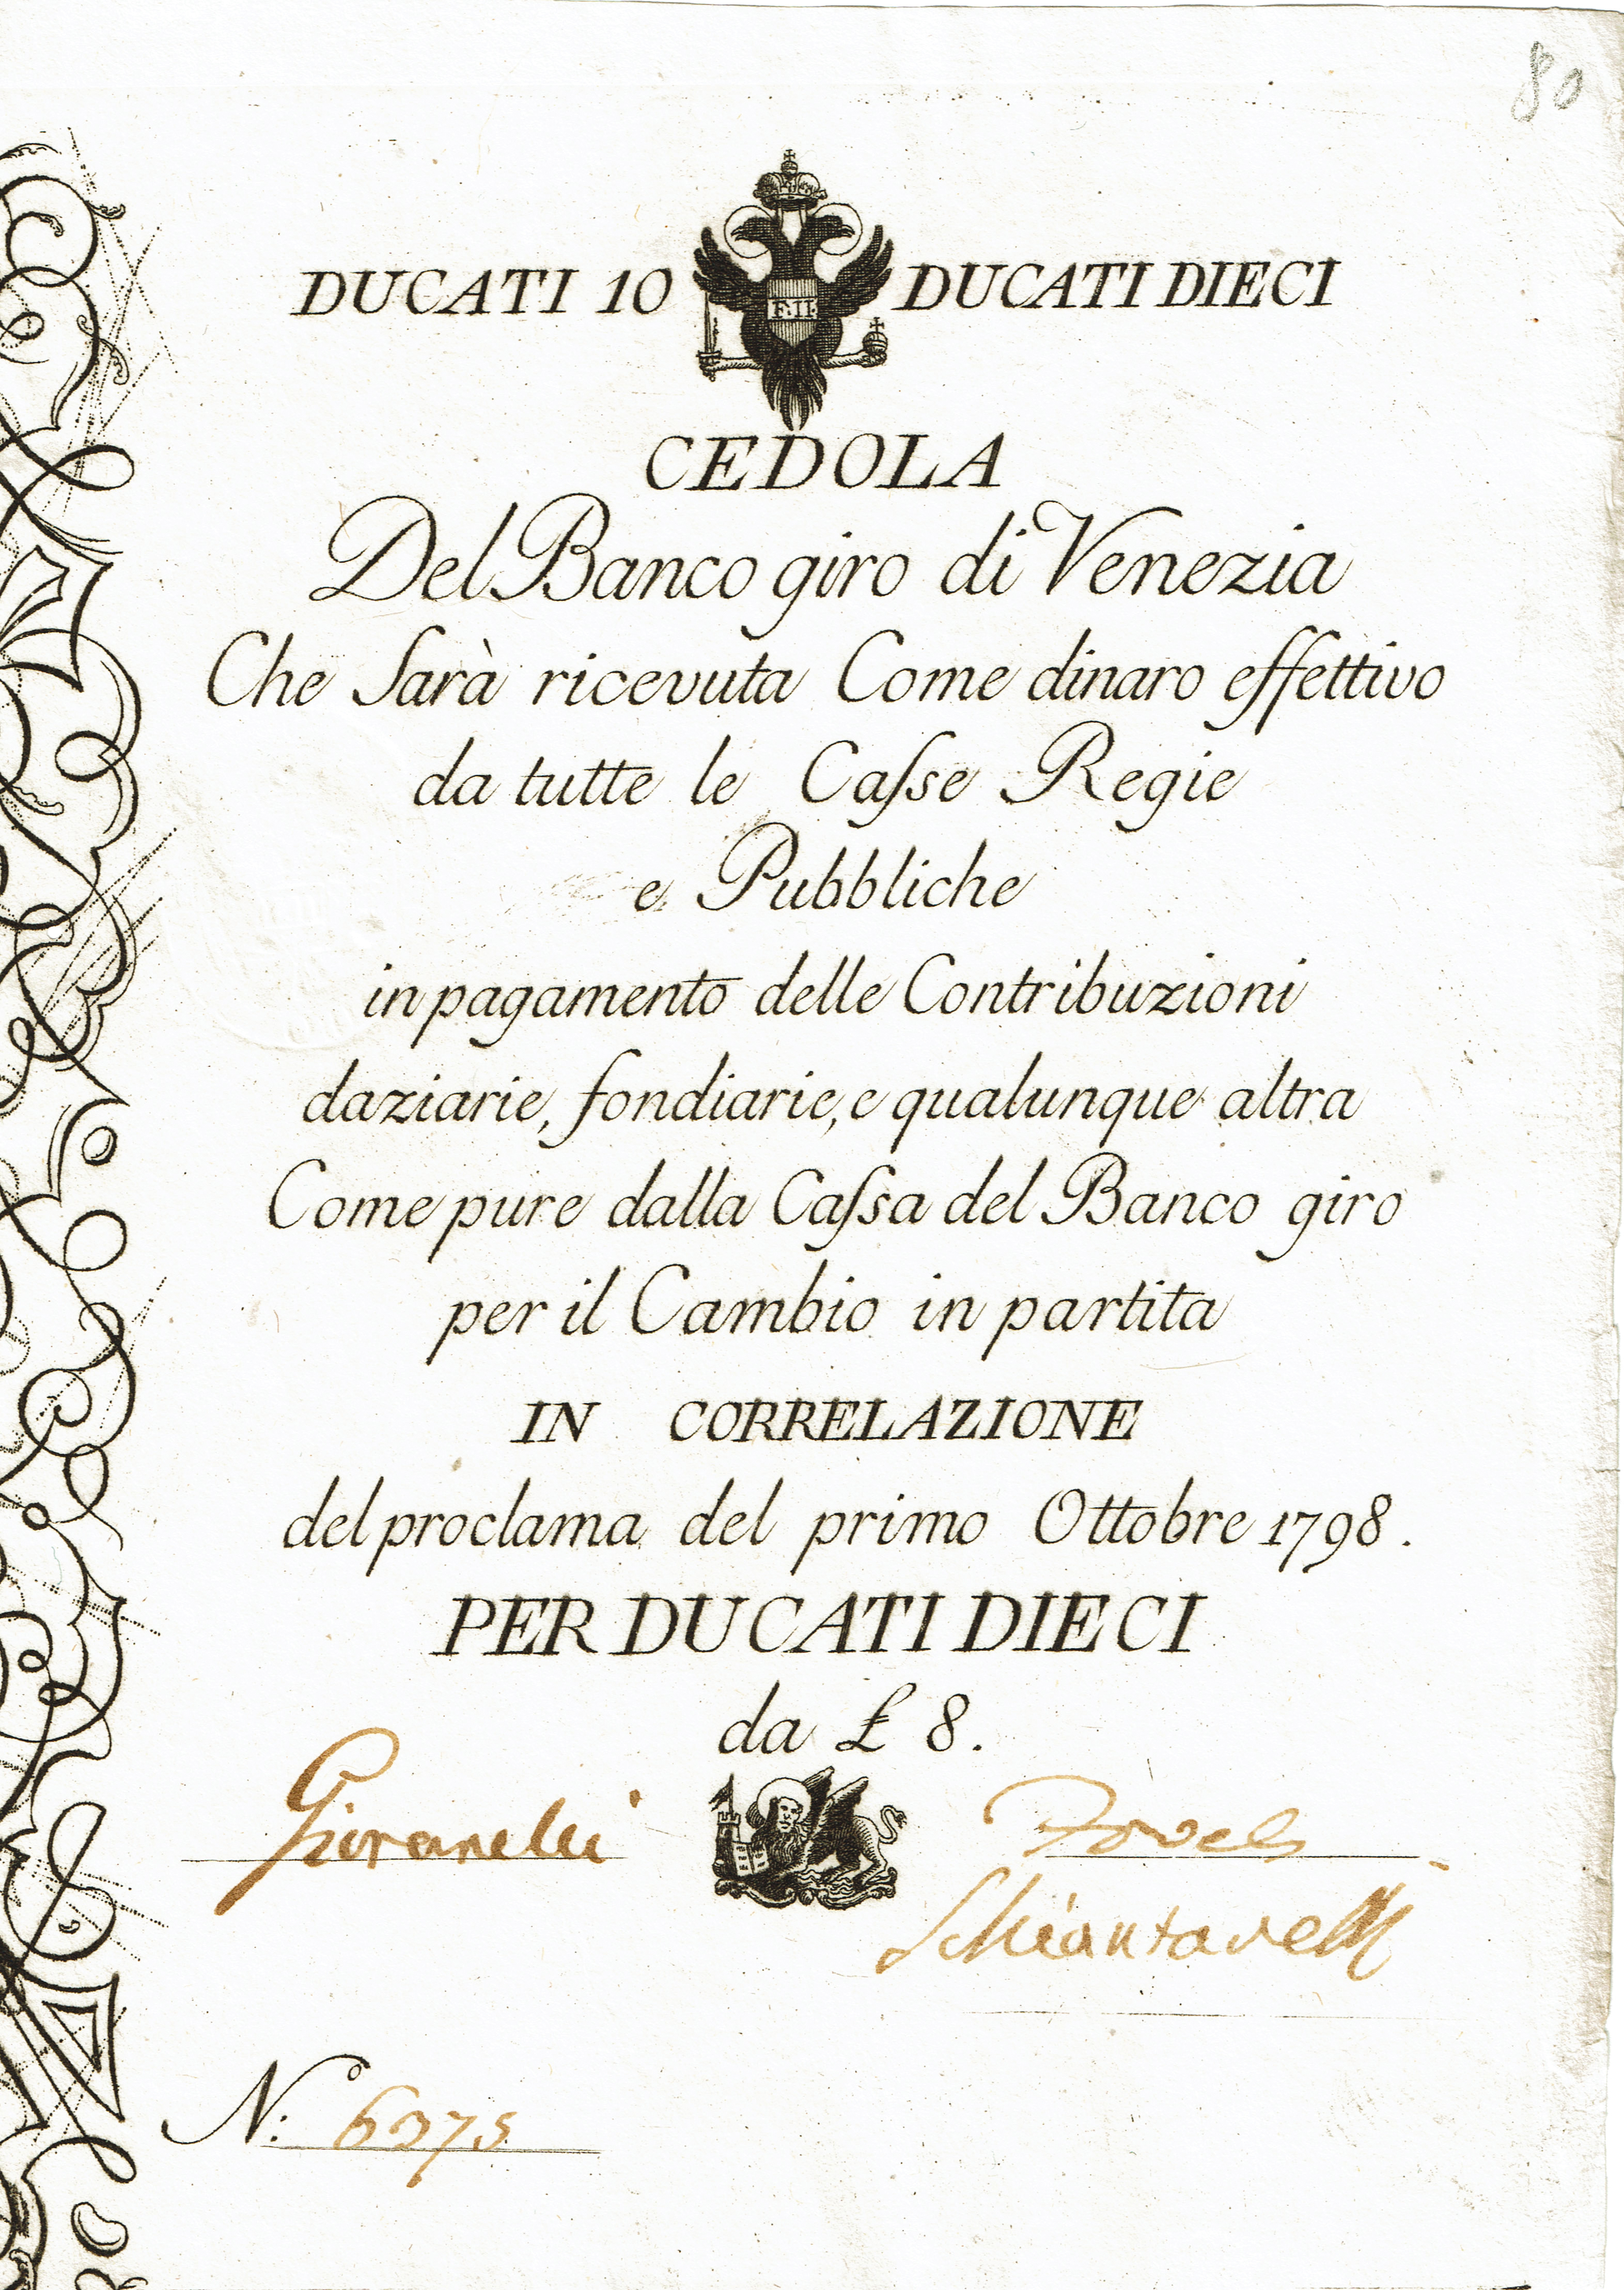 80
DUCATI 10 F. II. DUCATI DIECI
CEDOLA
Del Banco giro di Venezia
Che Sarà ricevuta Come dinaro effettivo
da tutte le Caſse Regie
e Pubbliche
in pagamento delle Contribuzioni
daziarie, fondiarie, e qualunque altra
Come pure dalla Caſsa del Banco giro
per il Cambio in partita
IN CORRELAZIONE
del proclama del primo Ottobre 1798.
PER DUCATI DIECI
da £ 8.
Giovanelli
Schiantarelli
N.º